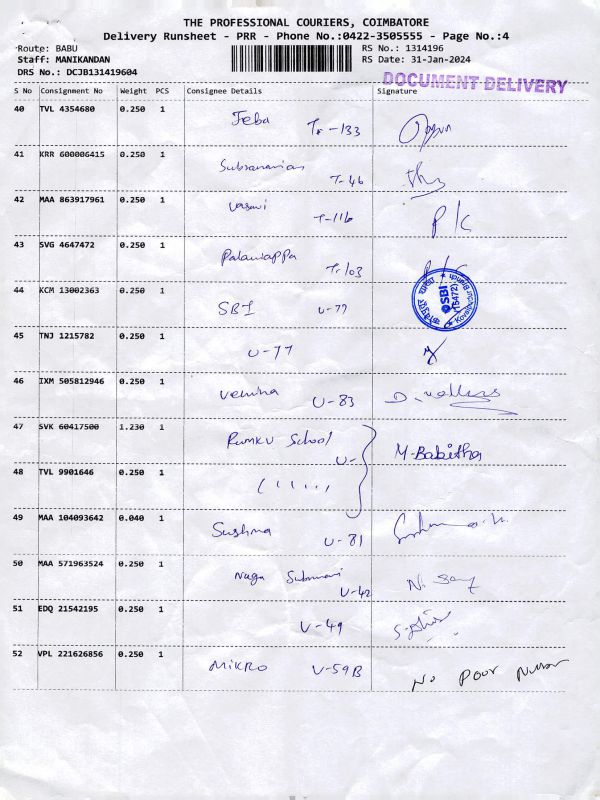 THE PROFESSIONAL COURIERS, COIMBATORE
Delivery Runsheet - PRR - Phone No.:0422-3505555 - Page No.:4
Route: BABU
RS No.: 1314196
Staff: MANIKANDAN
RS Date: 31-Jan-2024
DRS No.: DCJB131419604
DOCUMENT DELIVERY
S No Consignment No Weight PCS Consignee Details Signature
40 TVL 4354680 0.250 1 Jeba Tr-133
41 KRR 600006415 0.250 1 T-46
42 MAA 863917961 0.250 1 Vasavi T-116 P K
43 SVG 4647472 0.250 1 Palaniappa Tr-103
44 KCM 13002363 0.250 1 SBI U-77
SBI
(15472)
Kovaipudur Branch
45 TNJ 1215782 0.250 1 U-77
46 IXM 505812946 0.250 1 U-83
47 SVK 60417500 1.230 1 School U- M.Babitha
48 TVL 9901646 0.250 1
49 MAA 104093642 0.040 1 Sushma U-81
50 MAA 571963524 0.250 1 Naga U-42
51 EDQ 21542195 0.250 1 U-49
52 VPL 221626856 0.250 1 MIKRO U-59B No Poor